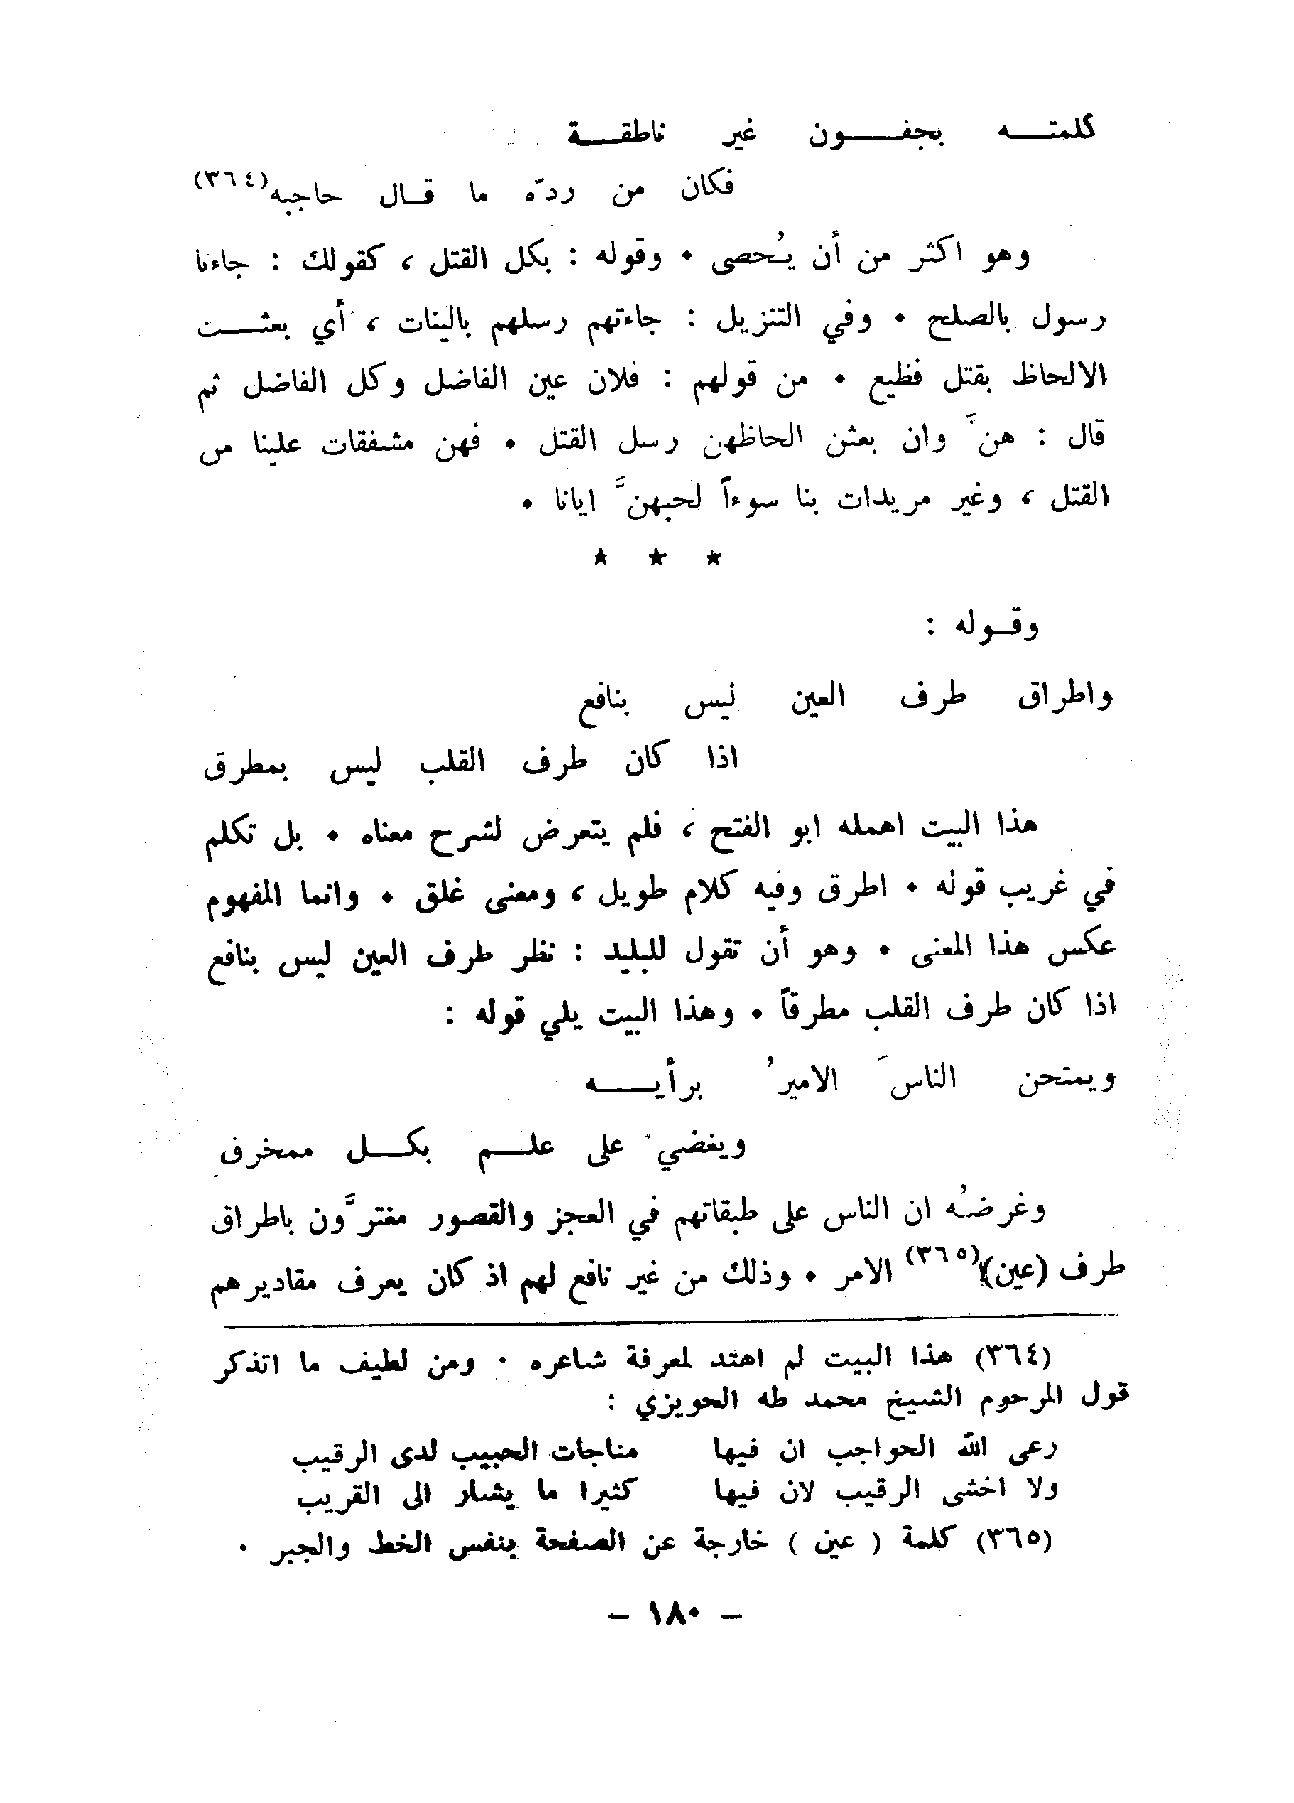 كلمته بجفون غير ناطقة
فكان من ردّه ما قال حاجبه(٣٦٤)
وهو اكثر من أن يُحصى ٠ وقوله : بكل القتل ، كقولك : جاءنا
رسول بالصلح ٠ وفي التنزيل : جاءتهم رسلهم بالبينات ، أي بعثت
الالحاظ بقتل فظيع ٠ من قولهم : فلان عين الفاضل وكل الفاضل ثم
قال : هنَّ وان بعثن الحاظهن رسل القتل ٠ فهن مشفقات علينا من
القتل ، وغير مريدات بنا سوءاً لحبهنَّ ايانا ٠
★ ★ ★
وقوله :
واطراق طرف العين ليس بنافع
اذا كان طرف القلب ليس بمطرق
هذا البيت اهمله ابو الفتح ، فلم يتعرض لشرح معناه ٠ بل تكلم
في غريب قوله ٠ اطرق وفيه كلام طويل ، ومعنى غلق ٠ وانما المفهوم
عكس هذا المعنى ٠ وهو أن تقول للبليد : نظر طرف العين ليس بنافع
اذا كان طرف القلب مطرقاً ٠ وهذا البيت يلي قوله :
ويمتحن الناسَ الاميرُ برأيه
ويغضي على علم بكل ممخرق
وغرضُه ان الناس على طبقاتهم في العجز والقصور مغترَّون باطراق
طرف (عين)(٣٦٥) الامر ٠ وذلك من غير نافع لهم اذ كان يعرف مقاديرهم
(٣٦٤) هذا البيت لم اهتد لمعرفة شاعره ٠ ومن لطيف ما اتذكر
قول المرحوم الشيخ محمد طه الحويزي :
رعى الله الحواجب ان فيها مناجات الحبيب لدى الرقيب
ولا اخشى الرقيب لان فيها كثيرا ما يشار الى القريب
(٣٦٥) كلمة ( عين ) خارجة عن الصفحة بنفس الخط والحبر ٠
– ١٨٠ –